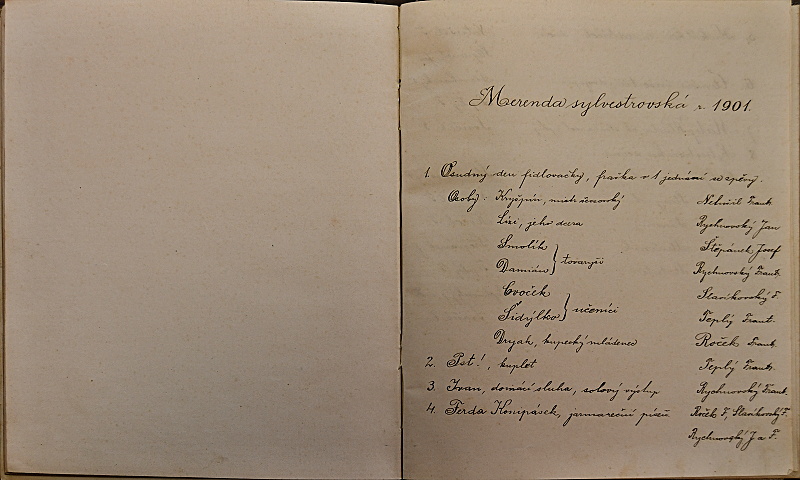 Merenda sylvestrovská r. 1901.
1. Osudný den fidlovačky, fraška v 1 jednání se zpěvy.
Osoby: Kryšpín, mistr ševcovský Nehušil Frant.
Lízi, jeho dcera Rychnovský Jan
Smolík Štěpánek Josef
Damián } tovaryši Rychnovský Frant.
Cvoček Slavíkovský F.
Šidýlko } učeníci Teplý Frant.
Dryák, kupecký mládenec Roček Frant.
2. Pst!, kuplet Teplý Frant.
3. Ivan, domácí sluha, solový výstup Rychnovský Frant.
4. Ferda Konipásek, jarmareční píseň Roček F, Slavíkovský F.
Rychnovský J a F.